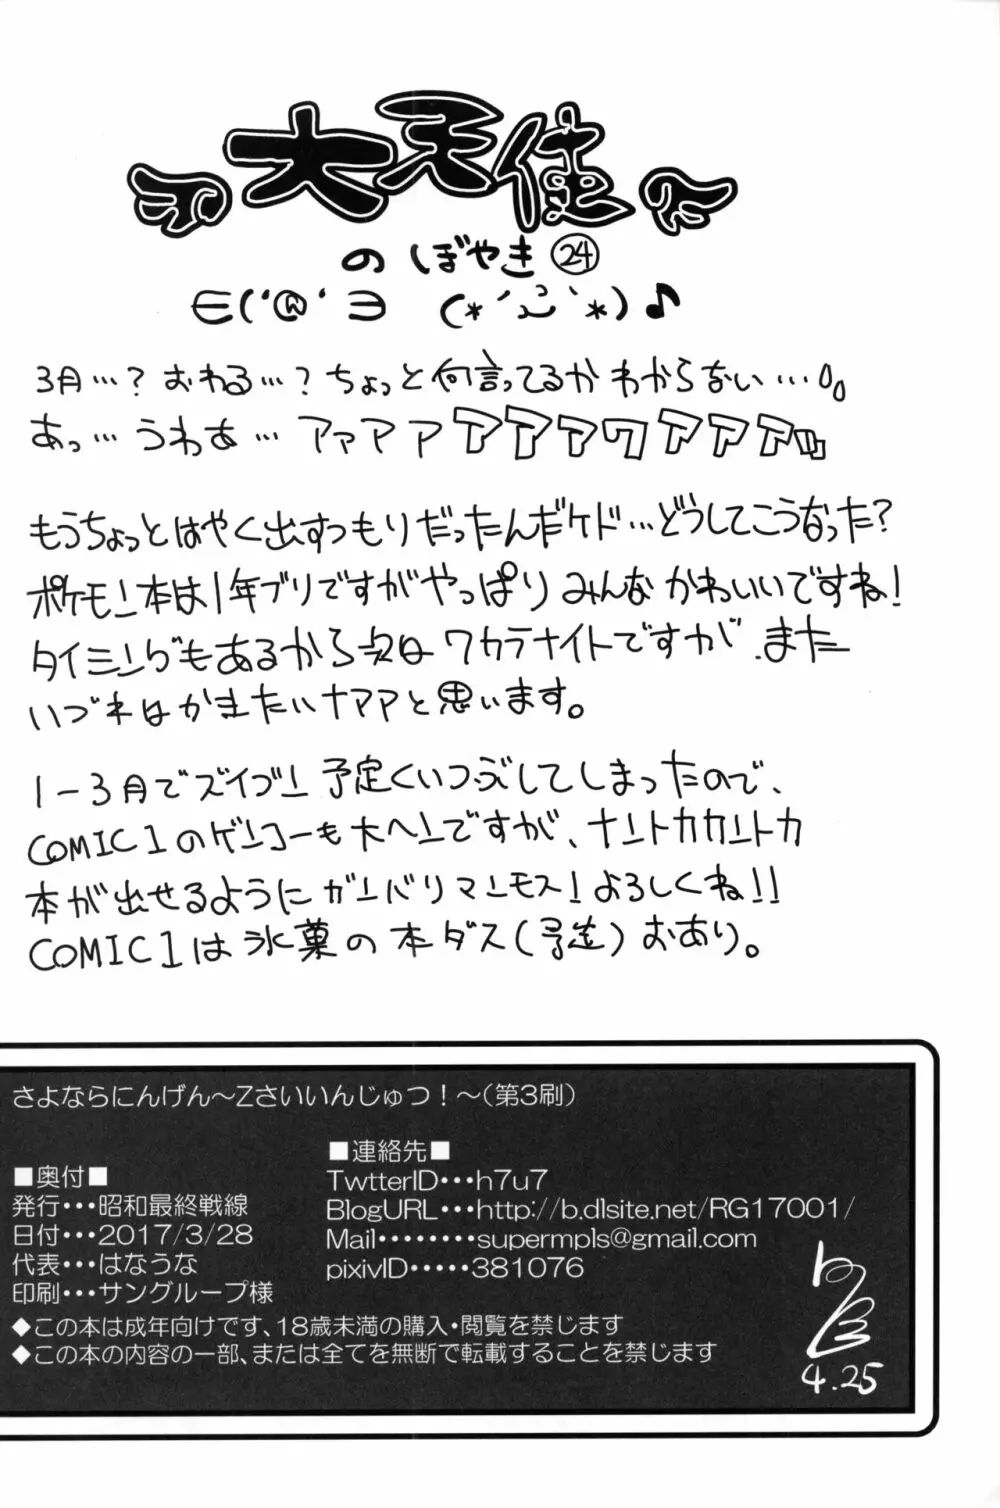 大天使
のぼやき㉔
∈('@'∋ (*´ω`*)♪
3月…?おわる…?ちょっと何言ってるかわからない…
あっ…うわぁ…アァアアアアァワアアアッ
もうちょっとはやく出すつもりだったんだケド…どうしてこうなった?
ポケモン本は1年ブリですがやっぱりみんなかわいいですね!
タイミングもあるから次はワカラナイトですが、また
いづれはかきたいナアアと思います。
1-3月でズイブン予定くいつぶしてしまったので、
COMIC1のゲンコーも大ヘンですが、ナントカカントカ
本が出せるようにガンバリマンモス!よろしくね!!
COMIC1は氷菓の本ダス(予定)おあり。
さよならにんげん〜Zさいいんじゅつ!〜(第3刷)
■奥付■
発行・・・昭和最終戦線
日付・・・2017/3/28
代表・・・はなうな
印刷・・・サングループ様
■連絡先■
TwtterID・・・h7u7
BlogURL・・・http://b.dlsite.net/RG17001/
Mail・・・・・・・・supermpls@gmail.com
pixivID・・・・・381076
◆この本は成年向けです、18歳未満の購入・閲覧を禁じます
◆この本の内容の一部、または全てを無断で転載することを禁じます
4.25